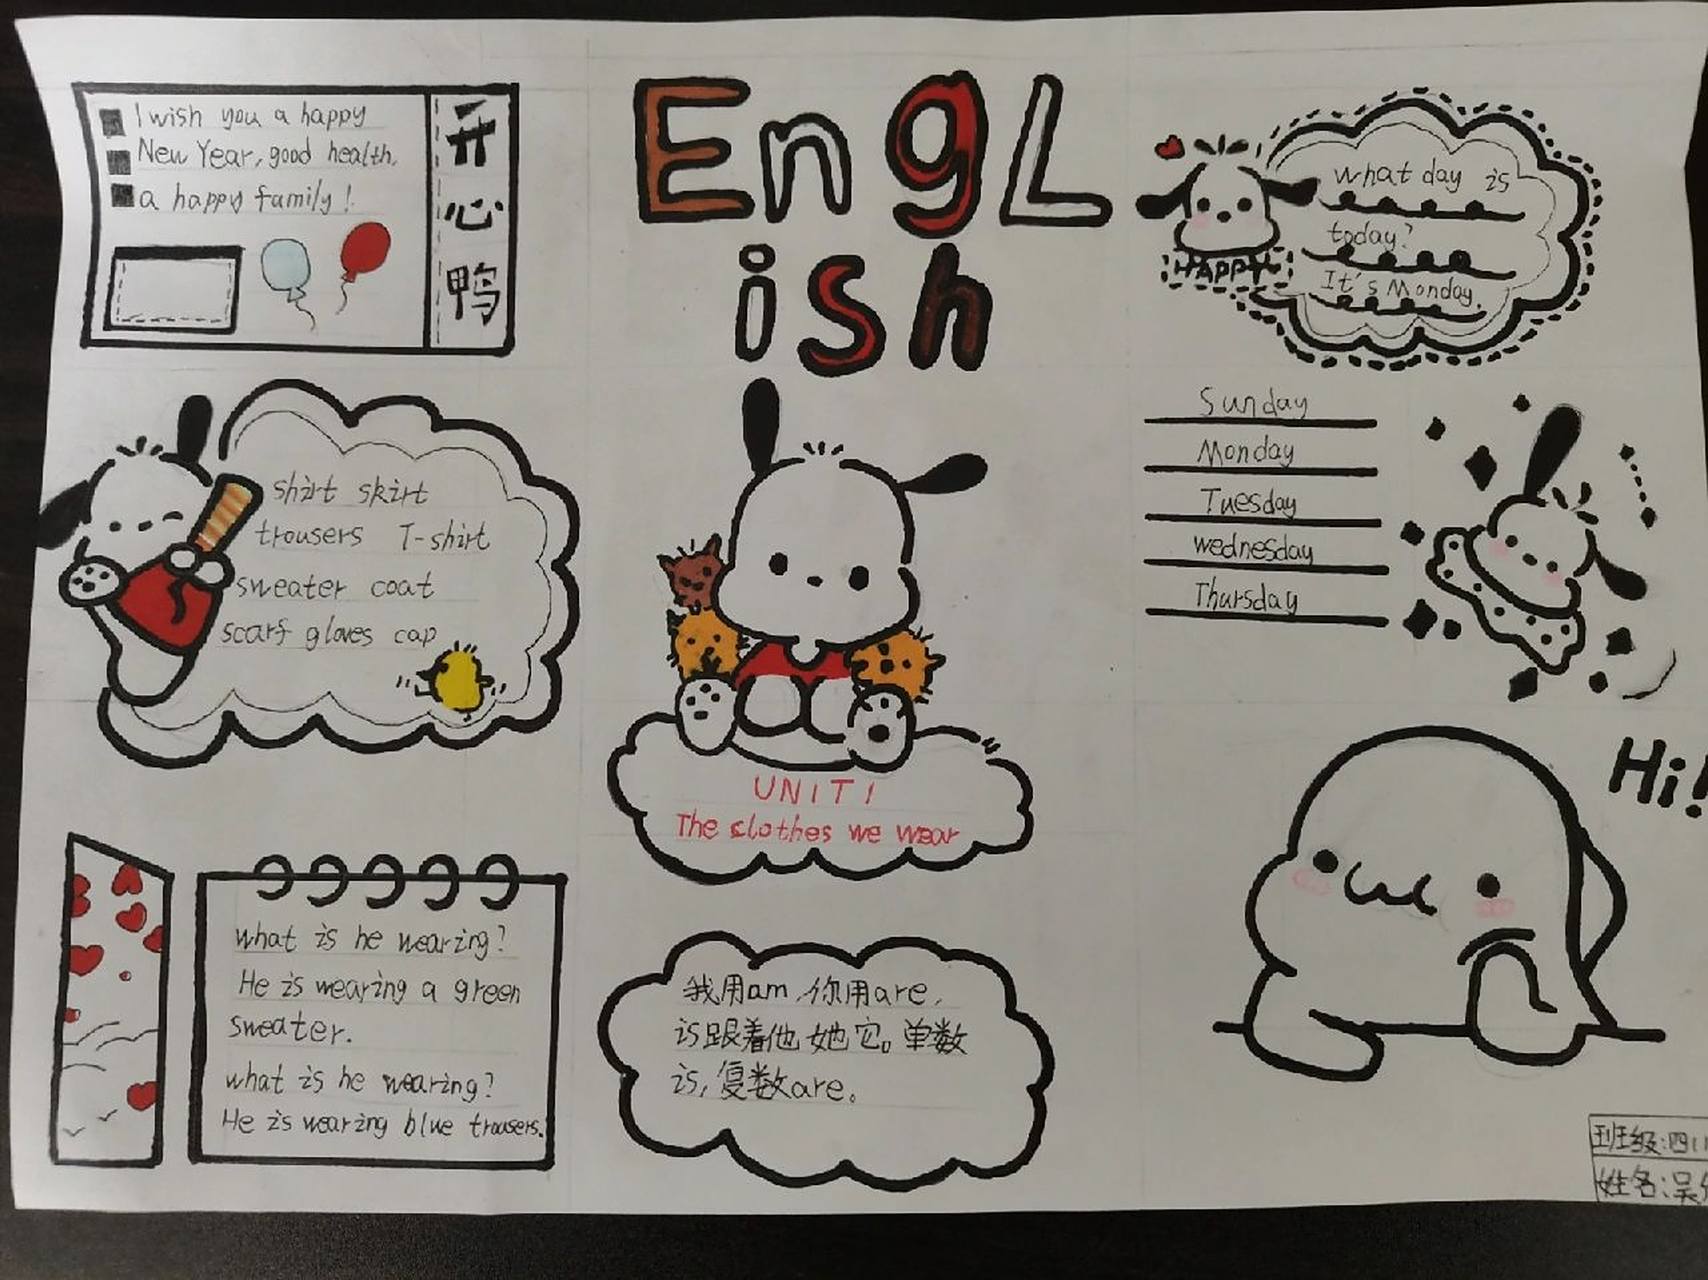 I wish you a happy
New Year, good health,
a happy family!
开
心
鸭
EngL
ish
what day is
today?
It's Monday.
HAPPY
shirt skirt
trousers T-shirt
sweater coat
scarf gloves cap
Sunday
Monday
Tuesday
wednesday
Thursday
UNIT1
The clothes we wear
Hi!
what is he wearing?
He is wearing a green
sweater.
what is he wearing?
He is wearing blue trousers.
我用am,你用are,
is跟着他她它。单数
is,复数are。
班级:四
姓名:吴